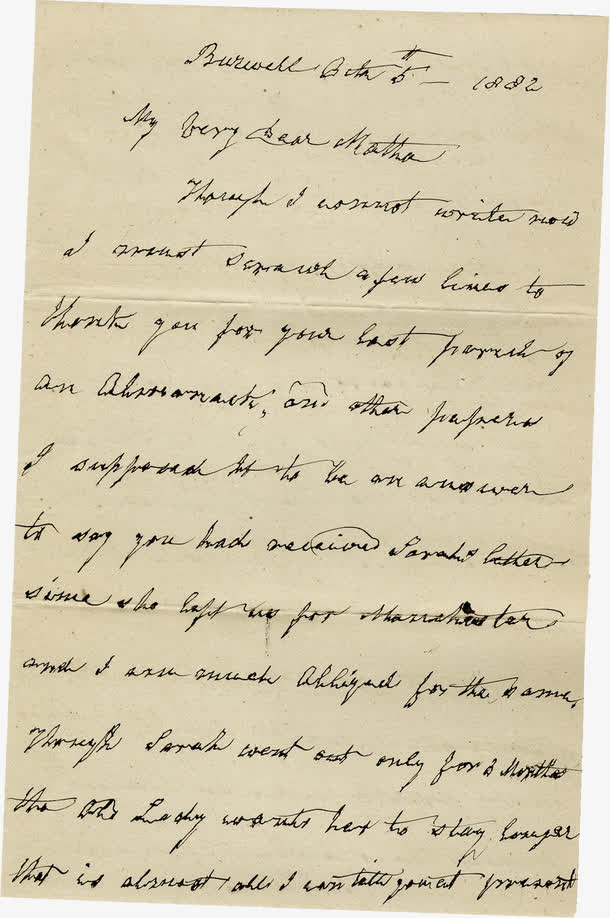 Burwell Octr 5th — 1882
My Very Dear Martha
Though I cannot write now
I must scrawl a few lines to
thank you for your last parcel of
an Almanack, and other papers
I supposed it to be an answer
to say you had received Sarahs letter
since she left us for Manchester
and I am much obliged for the same,
Though Sarah went out only for 3 Months
the Old Lady wants her to stay longer
that is almost all I can tell you at present